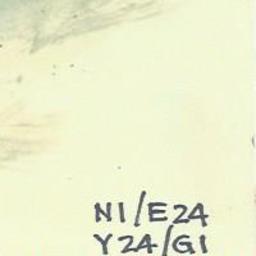 N1/E24
Y24/G1